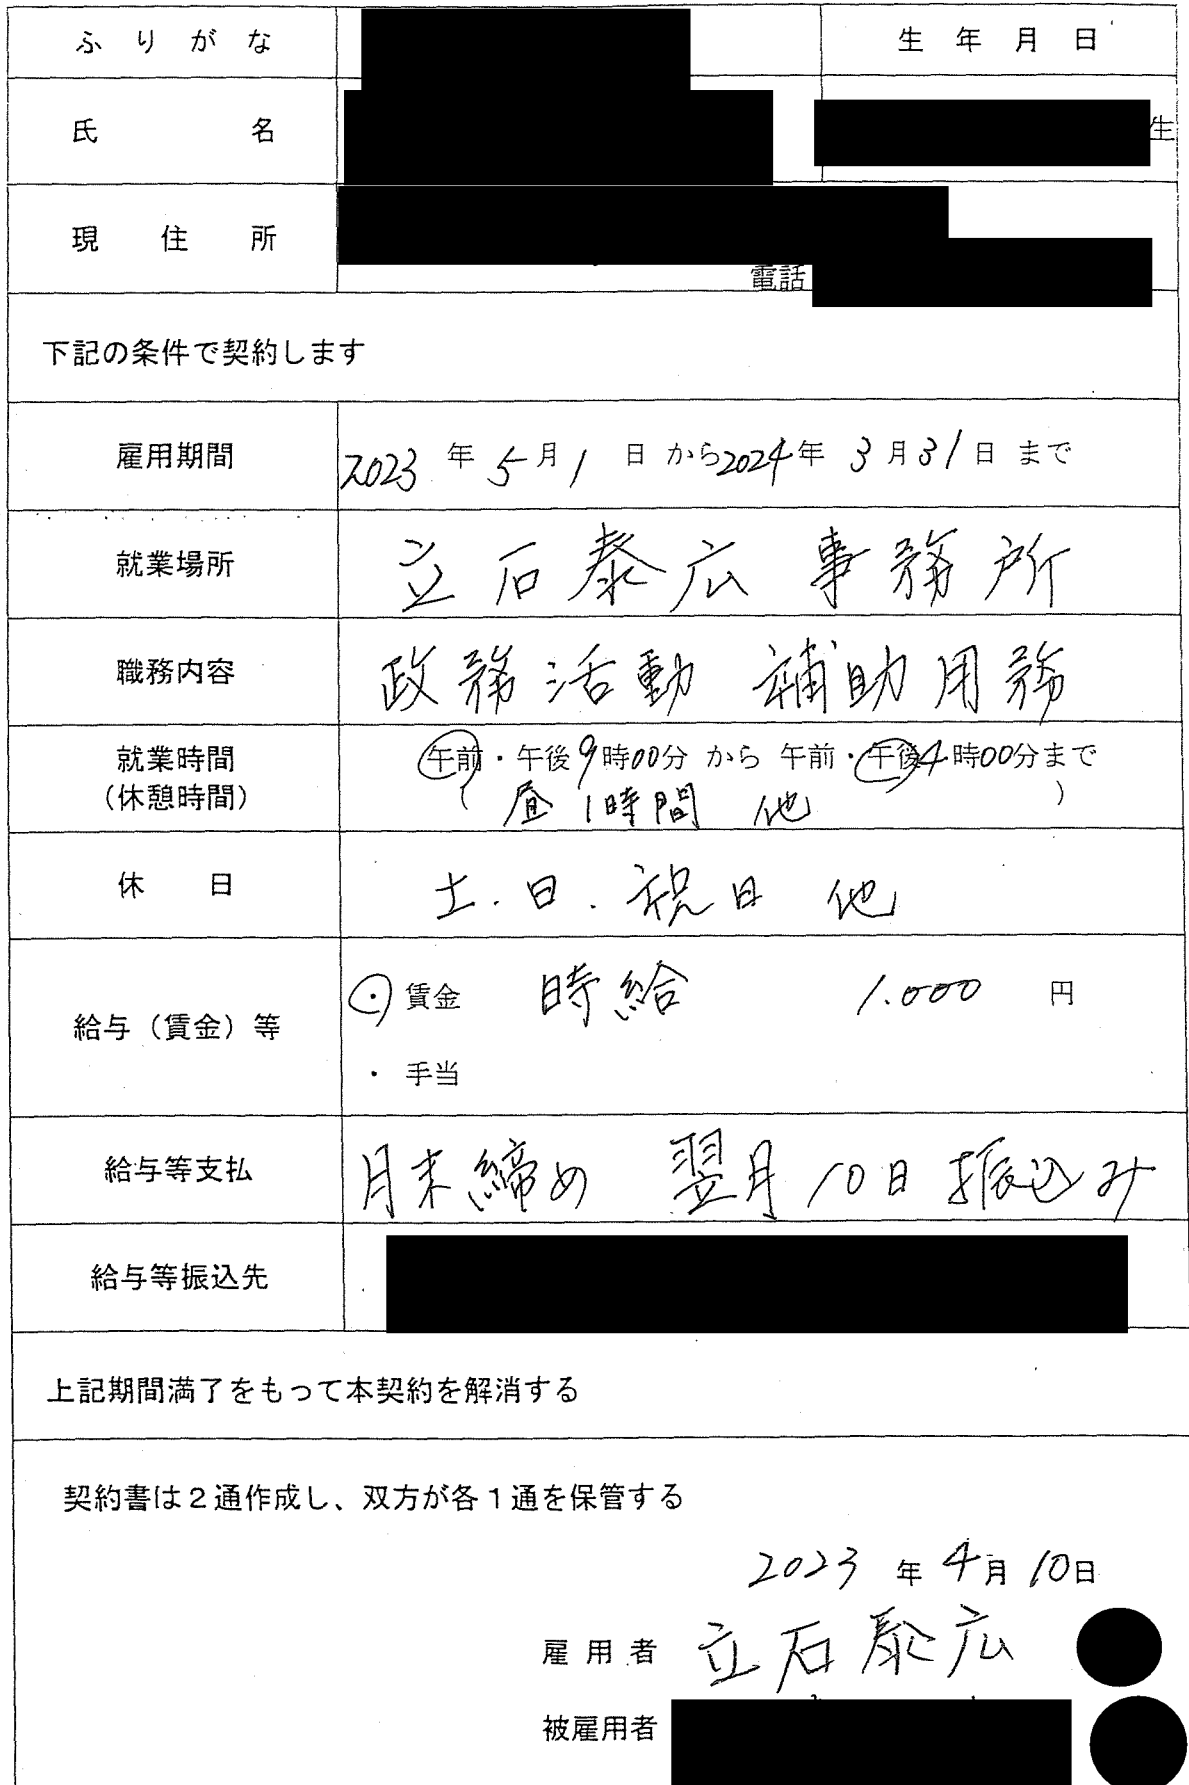 ふりがな 生年月日
氏名 生
現住所
電話
下記の条件で契約します
雇用期間 2023年5月1日から2024年3月31日まで
就業場所 立石泰広事務所
職務内容 政務活動 補助用務
就業時間 午前・午後9時00分から 午前・午後4時00分まで
(休憩時間) (昼1時間 他)
休日 土.日.祝日 他
給与（賃金）等 ・賃金 時給 1.000円
・手当
給与等支払 月末締め 翌月10日振込み
給与等振込先
上記期間満了をもって本契約を解消する
契約書は２通作成し、双方が各１通を保管する
2023年4月10日
雇用者 立石泰広
被雇用者